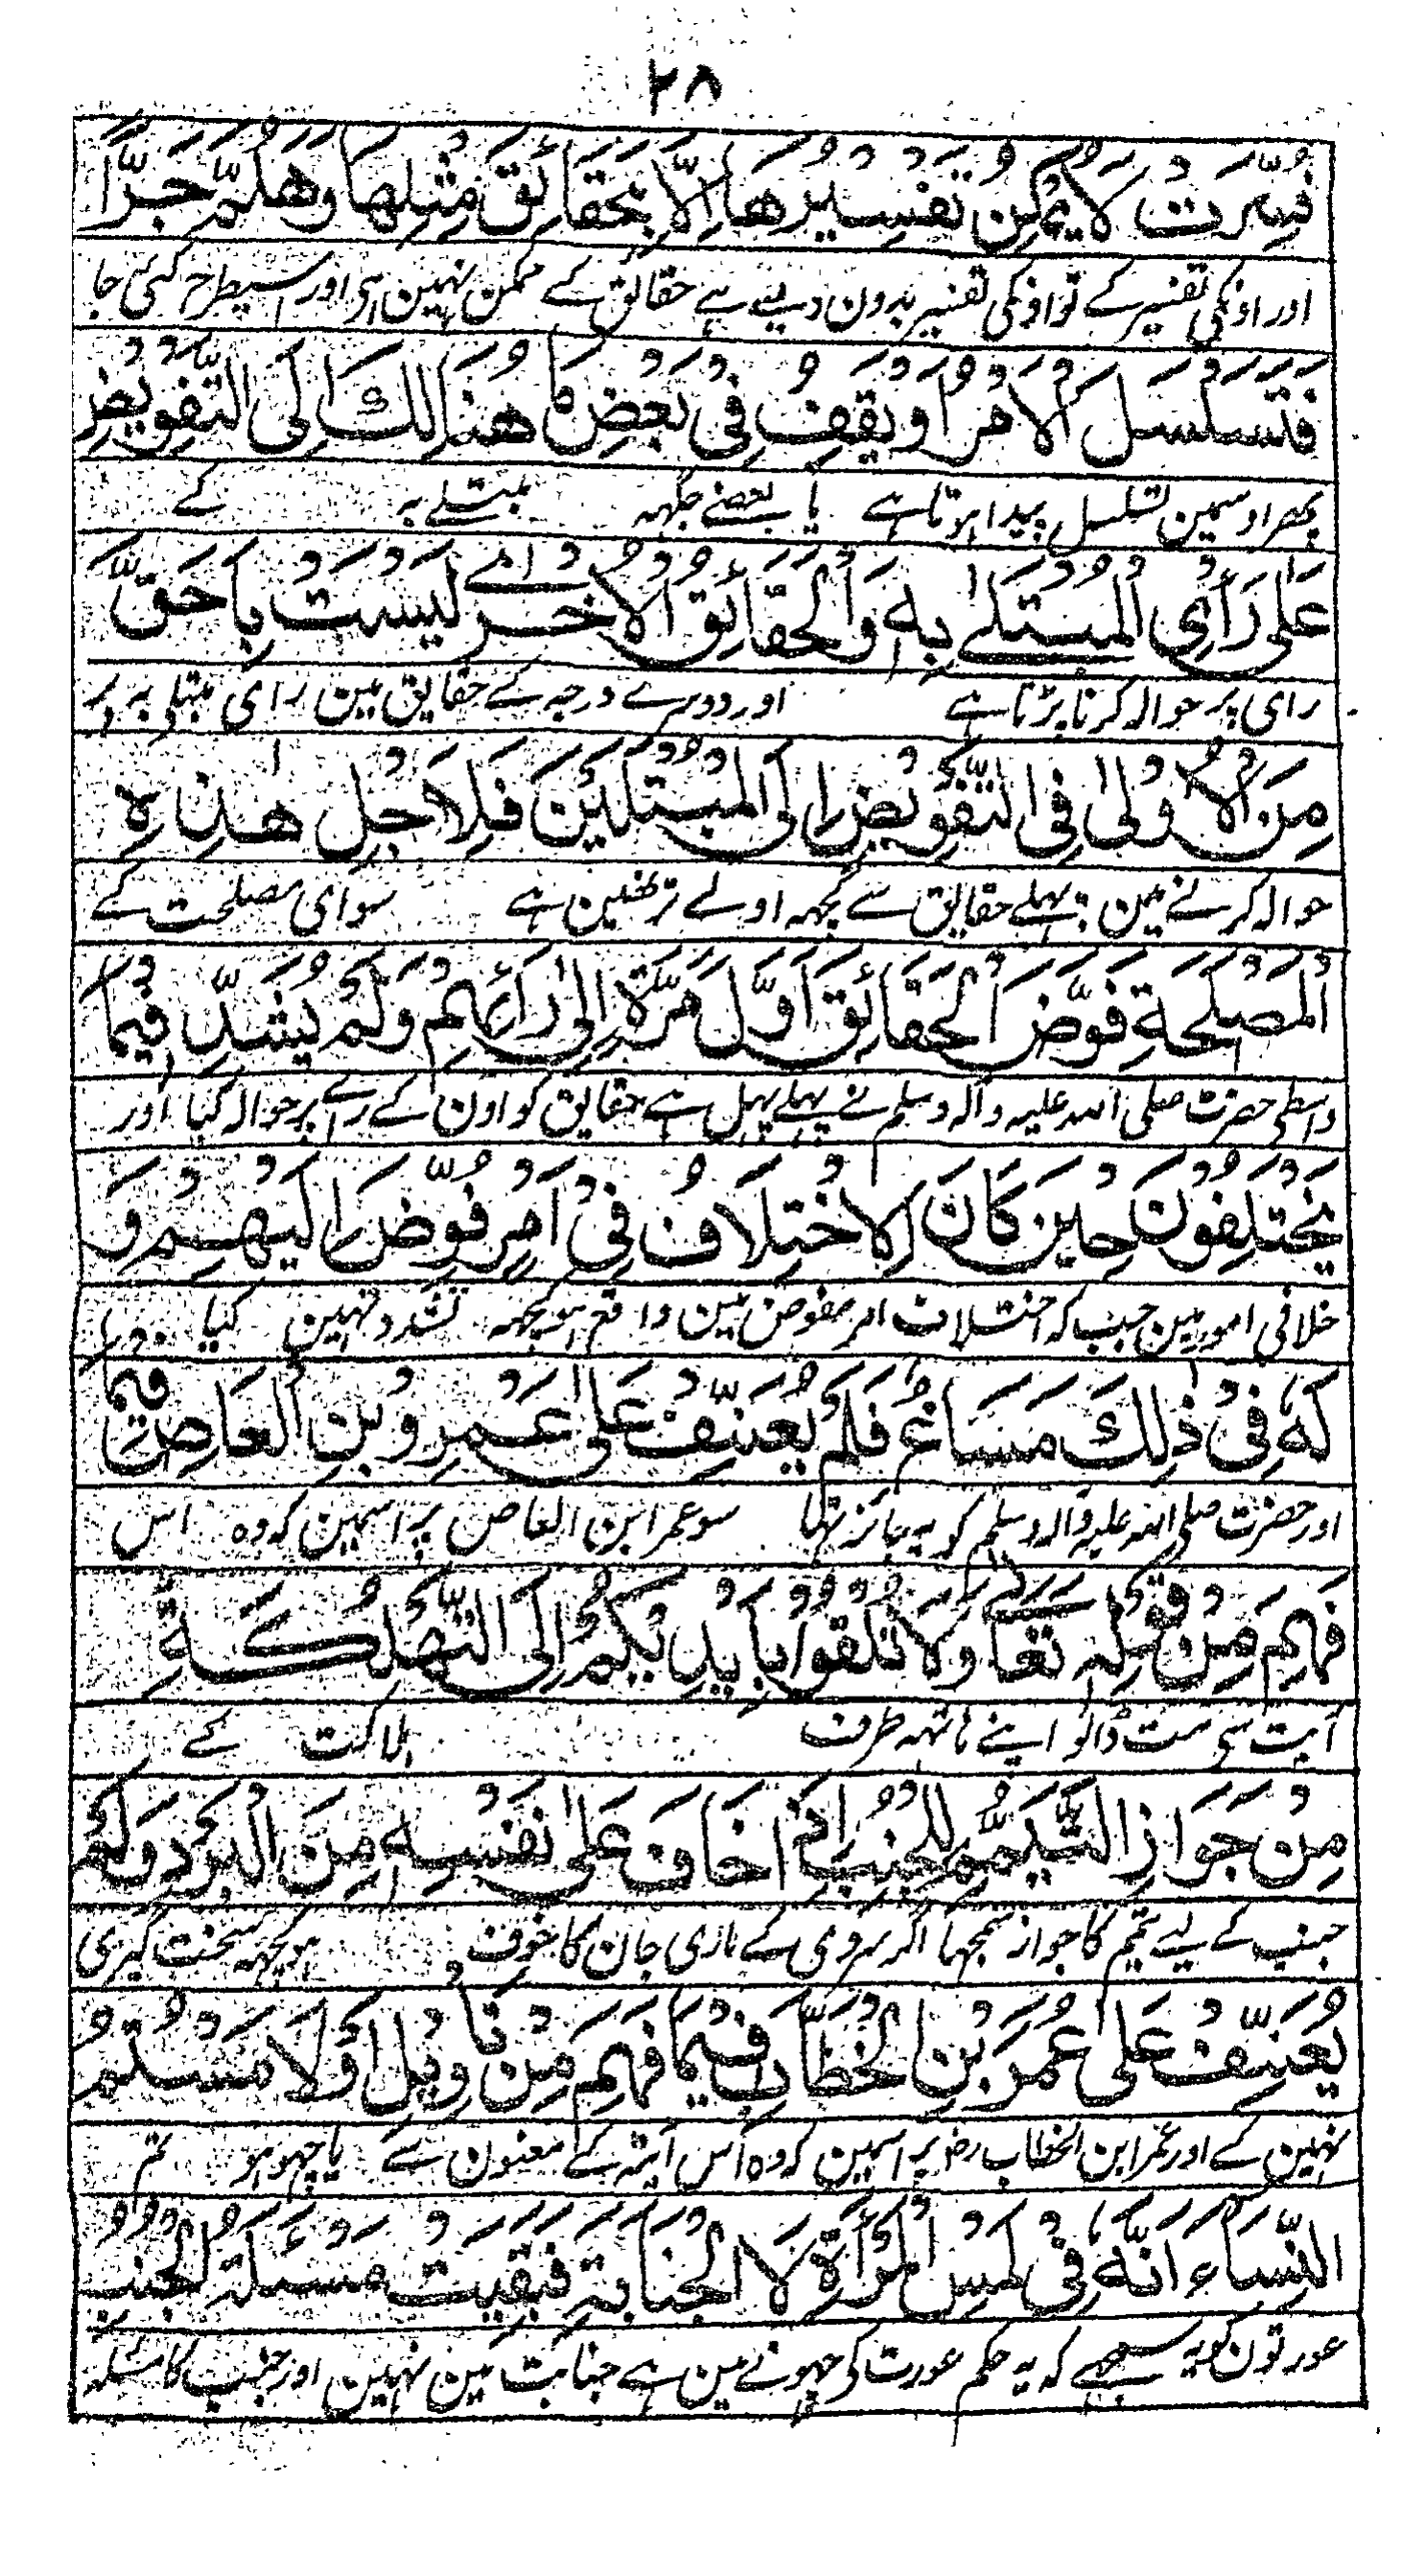 ٢٨
فُسِّرَتْ لَا يُمْكِنُ تَفْسِيْرُهَا اِلَّا بِحَقَائِقَ مِثْلِهَا وَهَلُمَّ جَرًّا
اور اونکی تفسیر کے تو اونکی تفسیر بدون ویسے ہے حقائق کے ممکن نہین اسی اور اسیطرح کہی جا
فَيَتَسَلْسَلُ الْاَمْرُ اَوْ يَقِفُ فِيْ بَعْضِ مَا هُنَالِكَ اِلَى التَّفْوِيْضِ
پھر اوسمین تسلسل پیدا ہوتا ہے یا بعضے جگہہ مبتلے بہ کے
عَلٰى رَأْيِ الْمُبْتَلٰے بِهٖ وَالْحَقَائِقُ الْاُخْرٰے لَيْسَتْ بِاَحَقَّ
رای پر حوالہ کرنا پڑتا ہے اور دوسرے درجہ کے حقایق مین رای مبتلے بہ پر
مِنَ الْاُوْلٰى فِي التَّفْوِيْضِ اِلَى الْمُبْتَلَيْنَ فَلِاَجْلِ هٰذِهِ
حوالہ کرنے مین پہلے حقایق سے کچہہ اولے تر نہین ہے سو اسی مصلحت کے
الْمَصْلَحَةِ فَوَّضَ الْحَقَائِقَ اَوَّلَ مَرَّةٍ اِلٰى رَاْئِهِمْ وَلَمْ يُشَدِّدْ فِيْمَا
واسطی حضرت صلی اللہ علیہ وآلہ وسلم نے پہلے پہل ہے حقایق کو اون کے راے پر حوالہ کیا اور
يَخْتَلِفُوْنَ حِيْنَ كَانَ الْاِخْتِلَافُ فِيْ اَمْرٍ فُوِّضَ اِلَيْهِمْ وَ
خلافی امور مین جب کہ اختلاف امر مفوض مین واقع ہو کچہہ تشدد نہین کیا
لَهٗ فِيْ ذٰلِكَ مَسَاغٌ فَلَمْ يُعَنِّفْ عَلٰى عَمْرِو بْنِ الْعَاصِ فِيْمَا
اور حضرت صلی اللہ علیہ وآلہ وسلم کو یہ جائز تہا سو عمر ابن العاص پر اسمین کہ وہ اس
فَهِمَ مِنْ قَوْلِهٖ تَعَالٰے وَلَا تُلْقُوْا بِاَيْدِيْكُمْ اِلَى التَّهْلُكَةِ
آیت سی مت ڈالو اپنے ہاتہہ طرف ہلاکت کے
مِنْ جَوَازِ التَّيَمُّمِ لِلْجُنُبِ اِذَا خَافَ عَلٰى نَفْسِهٖ مِنَ الْبَرْدِ وَلَمْ
جنب کے لیے تیمم کا جواز سمجہا اگر سردی کے ماری جان کا خوف ہو کچہہ سخت گیری
يُعَنِّفْ عَلٰى عُمَرَ بْنِ الْخَطَّابِ فِيْمَا فَهِمَ مِنْ تَأْوِيْلِ اَوْلَامَسْتُمُ
نہین کے اور عمر ابن الخطاب رض پر اسمین کہ وہ اس آیتہ کے معنون سے یا چہوا ہو تم
النِّسَاءَ اَنَّهٗ فِيْ لَمْسِ الْمَرْأَةِ لَا الْجَنَابَةِ فَبَقِيَتْ مَسْئَلَةُ الْجُنُبِ
عورتون کو یہ سمجہے کہ یہ حکم عورت کی چہونے مین ہے جنابت مین نہین اور جنب کا مسئلہ